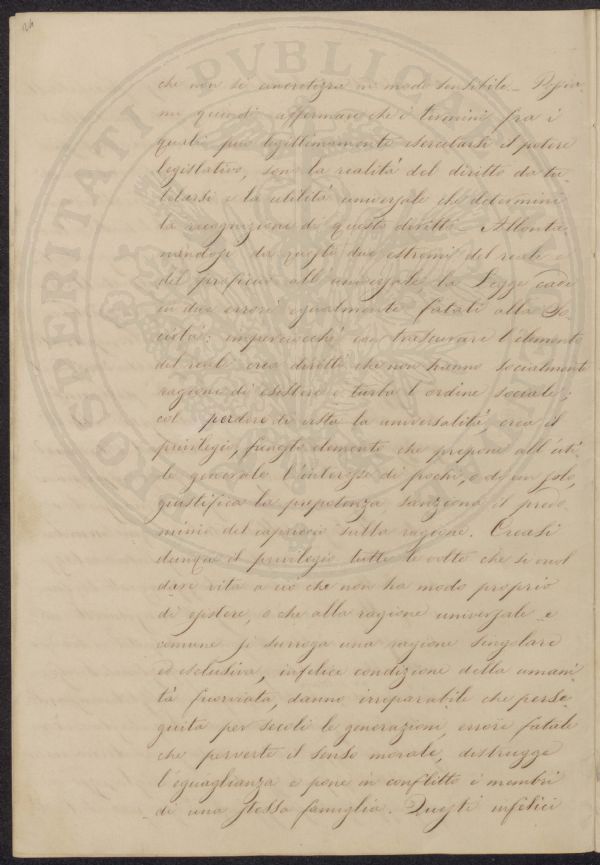 24
che non si concretizzi in modo sensibile_ Possia-
mo quindi affermare che i termini fra i
quali può legittimamente esercitarsi il potere
legislativo, sono la realità del diritto da tu-
telarsi e la utilità universale che determini
la recognizione di questo diritto_ Allonta-
nandosi da questi due estremi del reale e
del proficuo all'universale la Legge cade
in due errori egualmente fatali alla So-
cietà: imperciocchè con trascurare l'elemento
del reale crea diritti che non hanno socialmente
ragione di esistere e turba l'ordine sociale;
col perdere di vista la universalità, crea il
privilegio, funesto elemento che prepone all'uti-
le generale l'interesse di pochi, o di un solo,
giustifica la prepotenza, sanziona il predo-
minio del capriccio sulla ragione. Creasi
dunque il privilegio tutte le volte che si vuol
dare vita a ciò che non ha modo proprio
di esistere, o che alla ragione universale e
comune si surroga una ragione singolare
ed esclusiva, infelice condizione della umani-
tà fuorviata, danno irreparabile che perse-
guita per secoli le generazioni, errore fatale
che perverte il senso morale, distrugge
l'eguaglianza e pone in conflitto i membri
di una stessa famiglia. Questi infelici
PROSPERITATI PVBLICAE